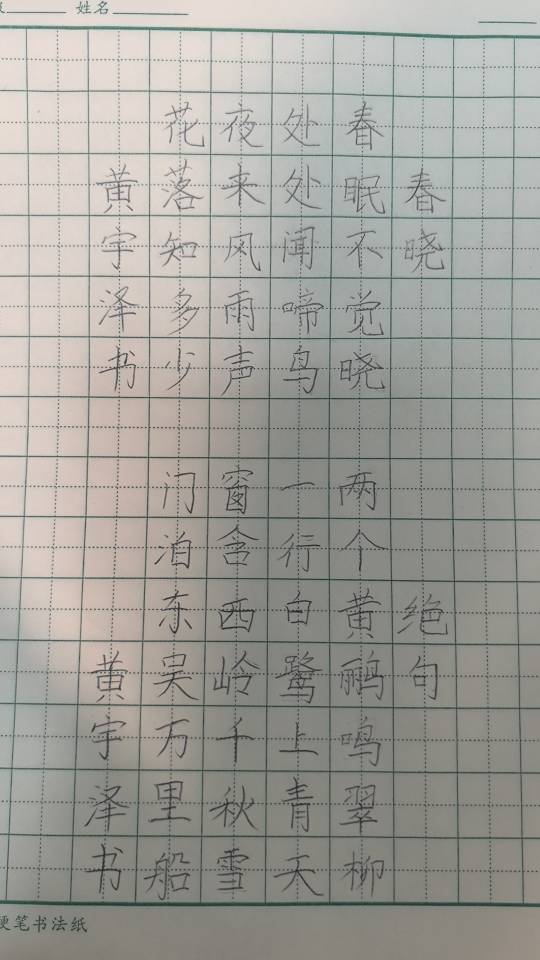 姓名
春晓
春眠不觉晓
处处闻啼鸟
夜来风雨声
花落知多少
黄宇泽书
绝句
两个黄鹂鸣翠柳
一行白鹭上青天
窗含西岭千秋雪
门泊东吴万里船
黄宇泽书
硬笔书法纸